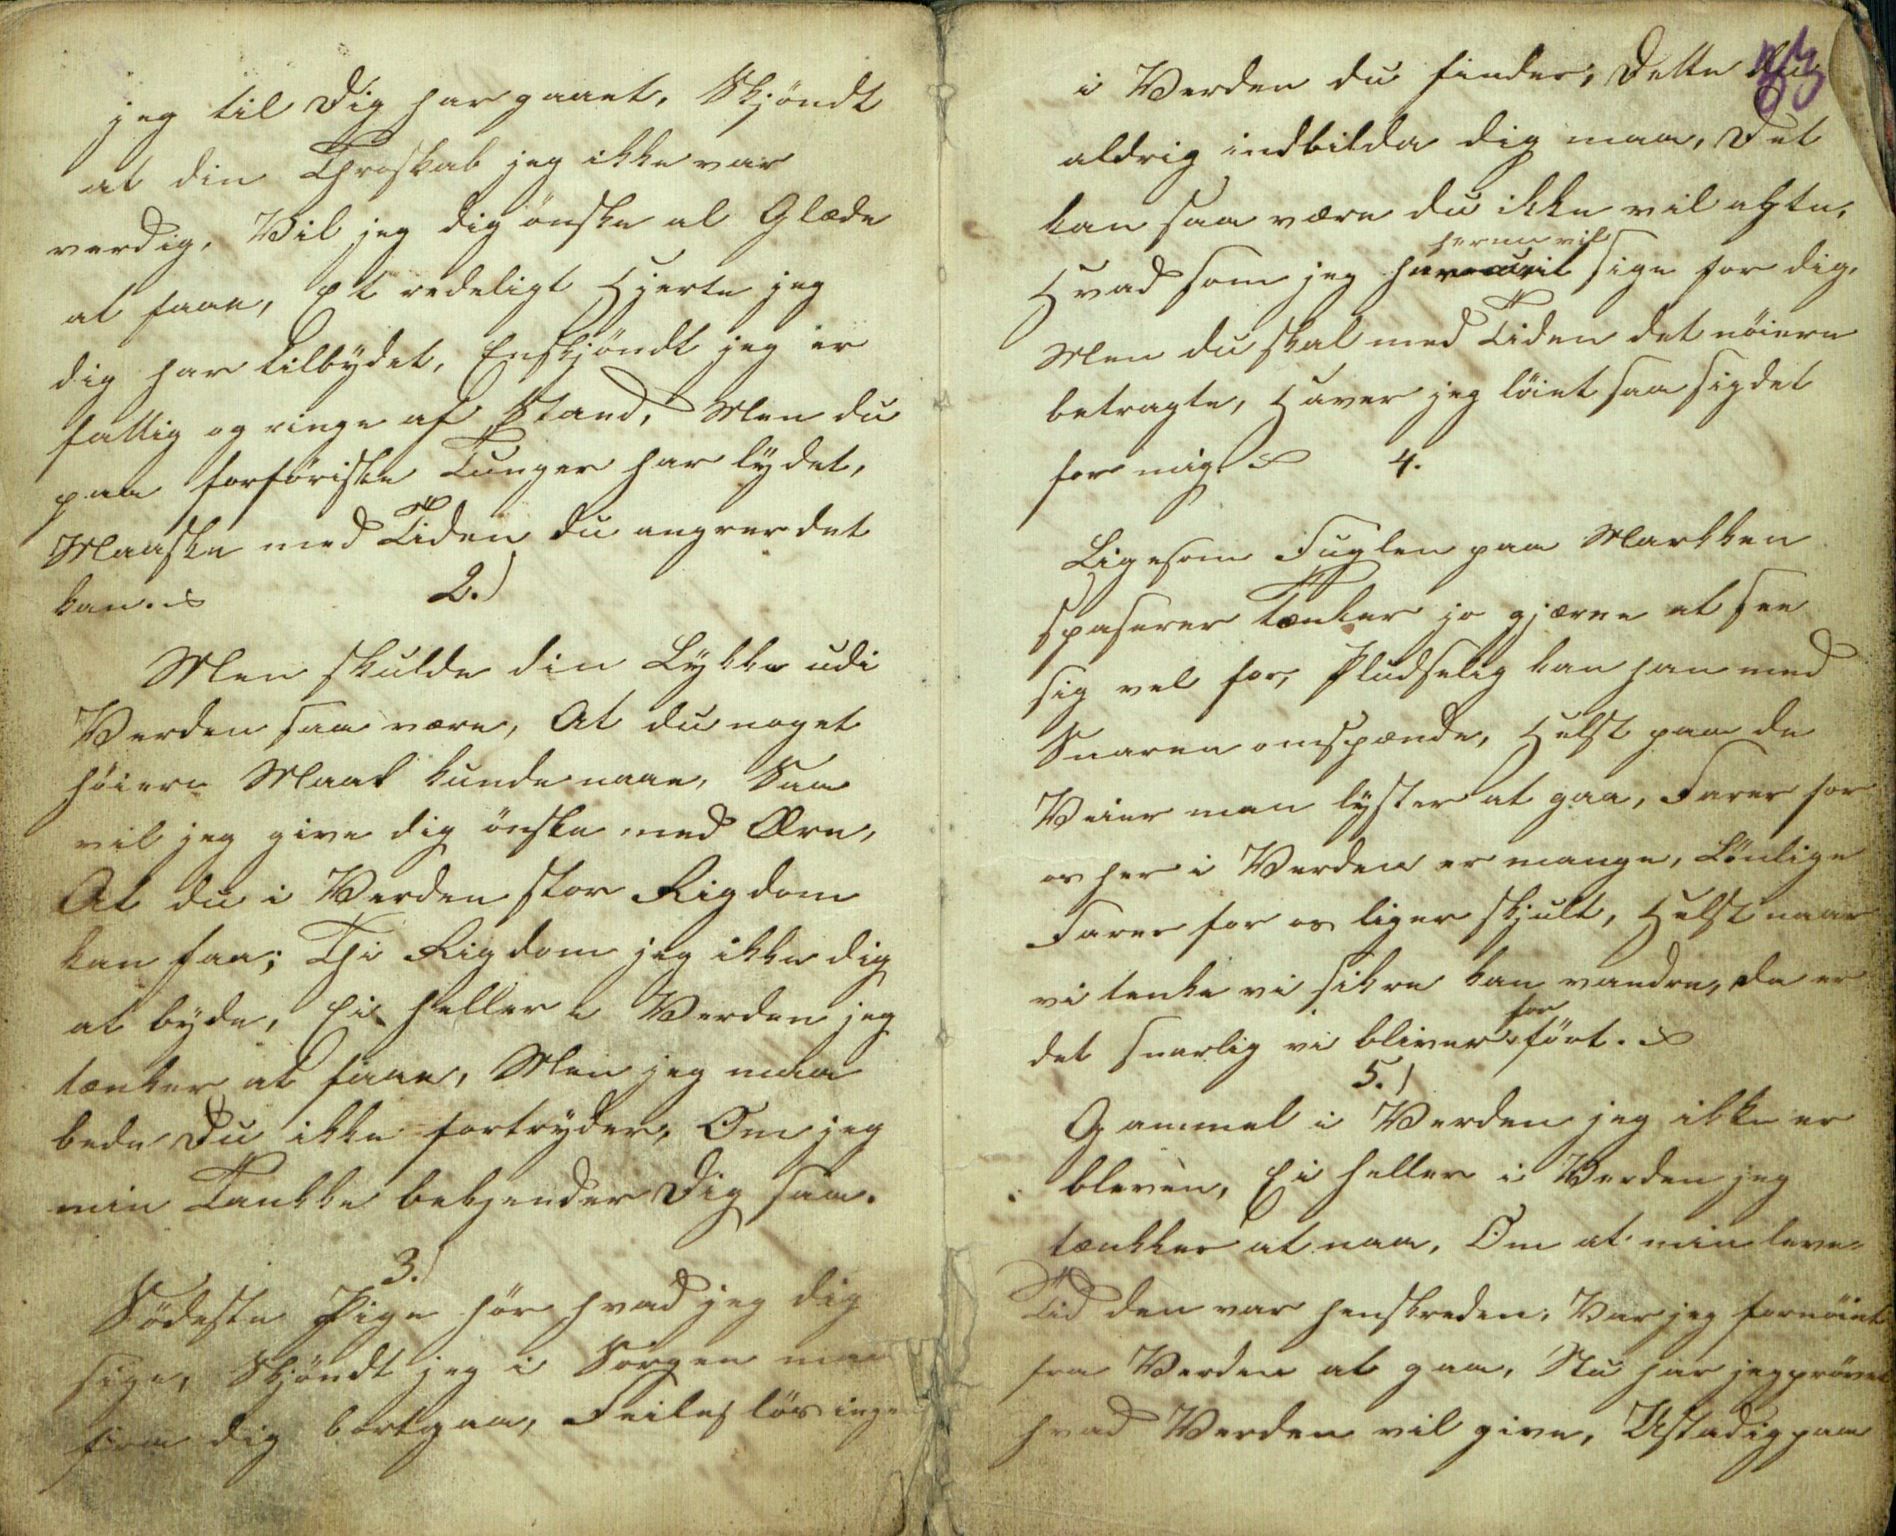 jeg til Dig har gaaet, Skjöndt
at din Throskab jeg ikke var
verdig, Vil jeg dig önske al Glæde
at faae, Et redeligt Hjerte jeg
dig har tilbydet, Enskjöndt jeg er
fattig og ringe af Stand, Men du
paa forföriske Tunger har lydet,
Maaske med Tiden du angrer det
kan.
2.)
Men skulde din Lykke udi
Verden saa være, At du noget
höiere Maal kunde naae, Saa
vil jeg give dig önske med Ære,
At du i Verden stor Rigdom
kan faa; Thi Rigdom jeg ikke dig
at byde, Ei heller i Verden jeg
tænker at faae, Men jeg maa
bede Du ikke fortryder, Om jeg
min Tankke bekjender Dig saa.
3.)
Södeste Pige hör hvad jeg dig
sige, Skjöndt jeg i Sorgen maa
fra dig bortgaa, Feileslös ingen
i Verden du finder, Dette du
aldrig indbilda dig maa, Det
kan saa være du ikke vil agte,
herom vil
Hvad som jeg sige for dig,
Men du skal med Tiden det nöiere
betragte, Haver jeg löiet saa sig det
for mig 4.
Ligesom Fuglen paa Markken
spaserer tænker jo gjærne at see
sig vel for, Pludselig kan han med
Snaren omspænde, Helst paa de
Veier man lyster at gaa, Farer for
os her i Verden er mange, Lönlige
Farer for os liger skjult, Helst naar
vi tenke vi sikre kan vandre, da er
for
det snarlig vi bliver fört.
5.)
Gammel i Verden jeg ikke er
bleven, Ei heller i Verden jeg
tænkker at naa, Om at min leve-
Tid den var henskreden, Var jeg fornöiet
fra Verden at gaa, Nu har jeg prövet
hvad Verden vil give, Ustadig paa